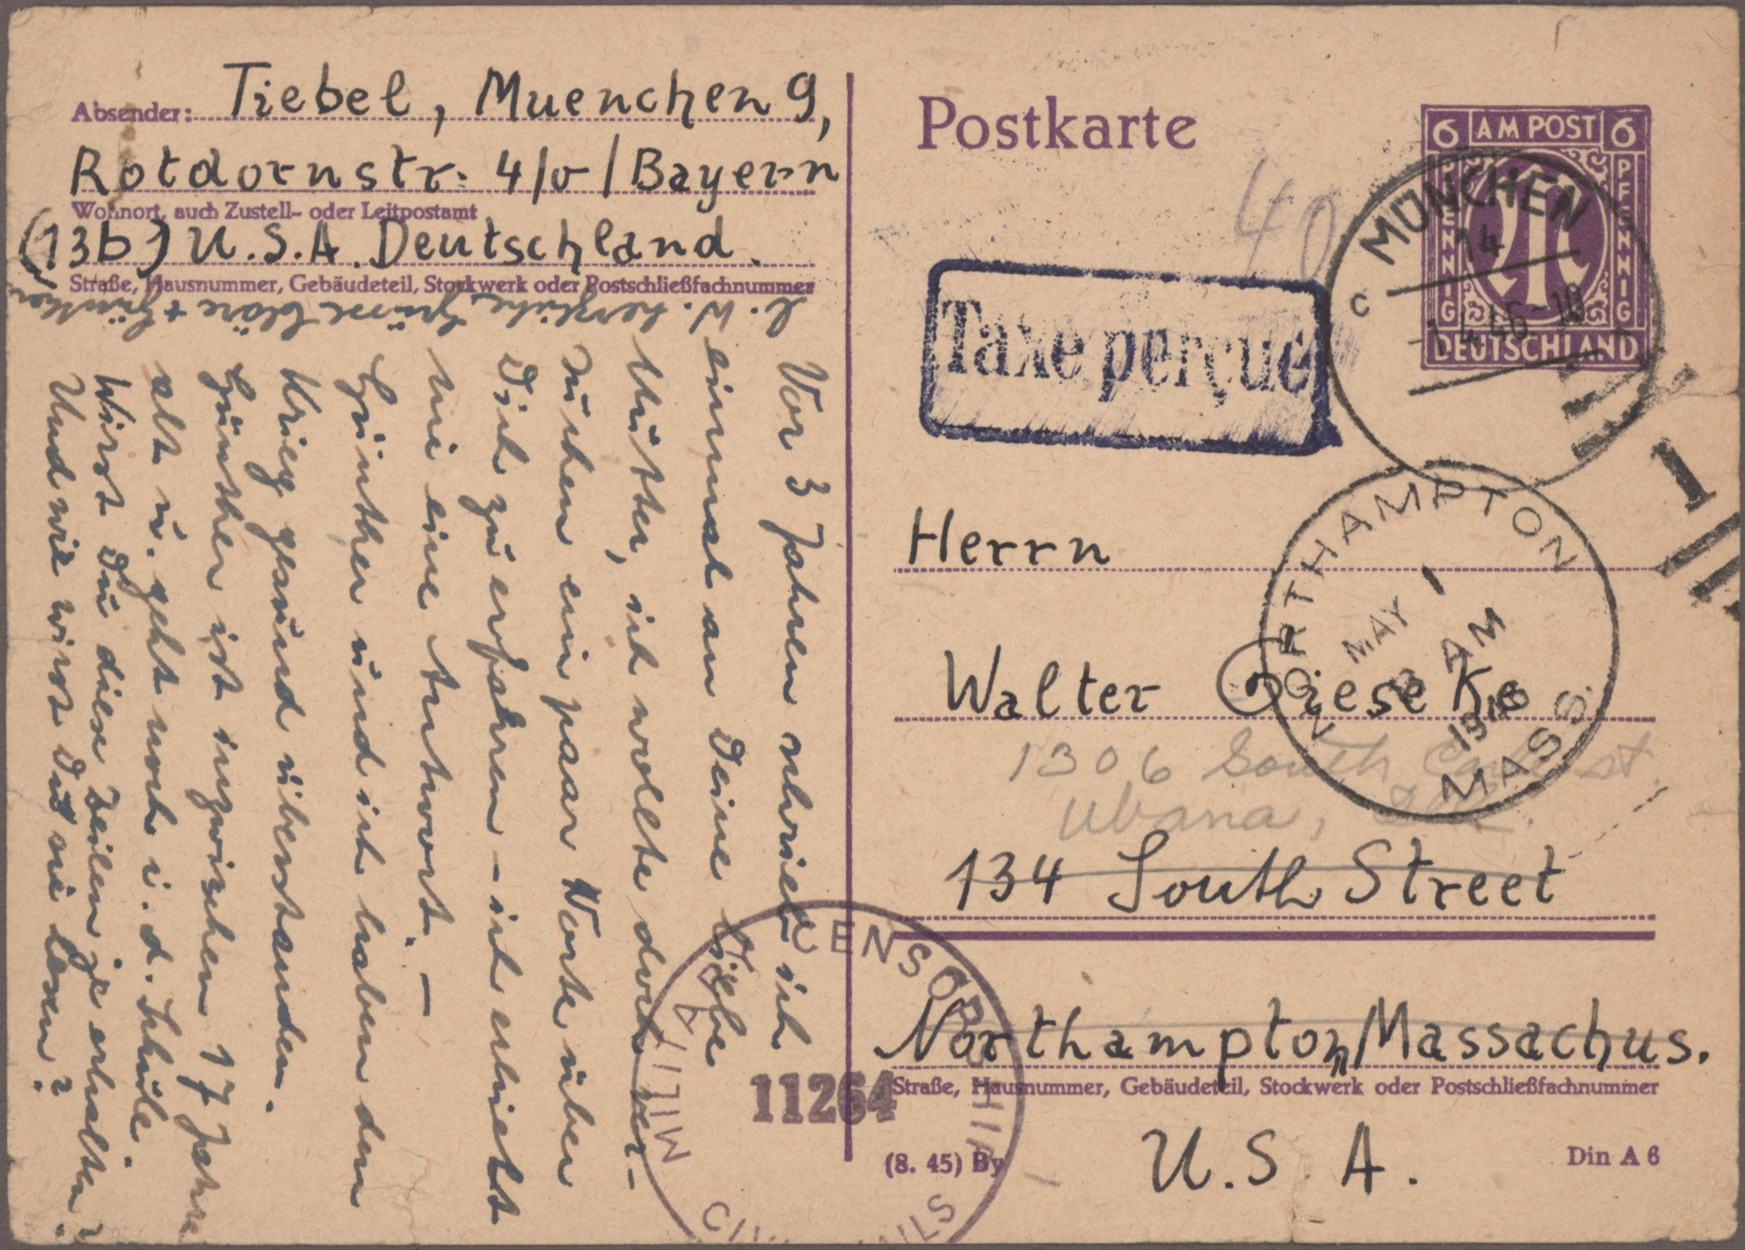 Absender: Tiebel, Muenchen 9,
Rotdornstr. 4/0 / Bayern
Wohnort, auch Zustell- oder Leitpostamt
(13b) U.S.A. Deutschland.
Straße, Hausnummer, Gebäudeteil, Stockwerk oder Postschließfachnummer
Vor 3 Jahren schrieb ich
einmal an Deine liebe
Mutter, ich wollte doch ver-
suchen ein paar Worte über
Dich zu erfahren – ich erhielt
nie eine Antwort. —
Günther und ich haben den
Krieg gesund überstanden.
Günther ist inzwischen 17 Jahre
alt u. geht noch i. d. Schule.
Wirst Du diese Zeilen je erhalten?
Und wie wirst Du sie lesen?
L. W. herzliche Grüsse +
Postkarte
6 AM POST 6
PFENNIG PFENNIG
DEUTSCHLAND
MÜNCHEN
14
c
-1.4.46-10
1
40
Taxe perçue
NORTHAMPTON
MAY
1
AM
1946
MASS.
Herrn
Walter Gieseke
1306 South St.
Ubana,
134 South Street
Northampton/Massachus.
Straße, Hausnummer, Gebäudeteil, Stockwerk oder Postschließfachnummer
U.S.A.
(8. 45) By
Din A 6
CENSORSHIP
CIVIL MAILS
11264